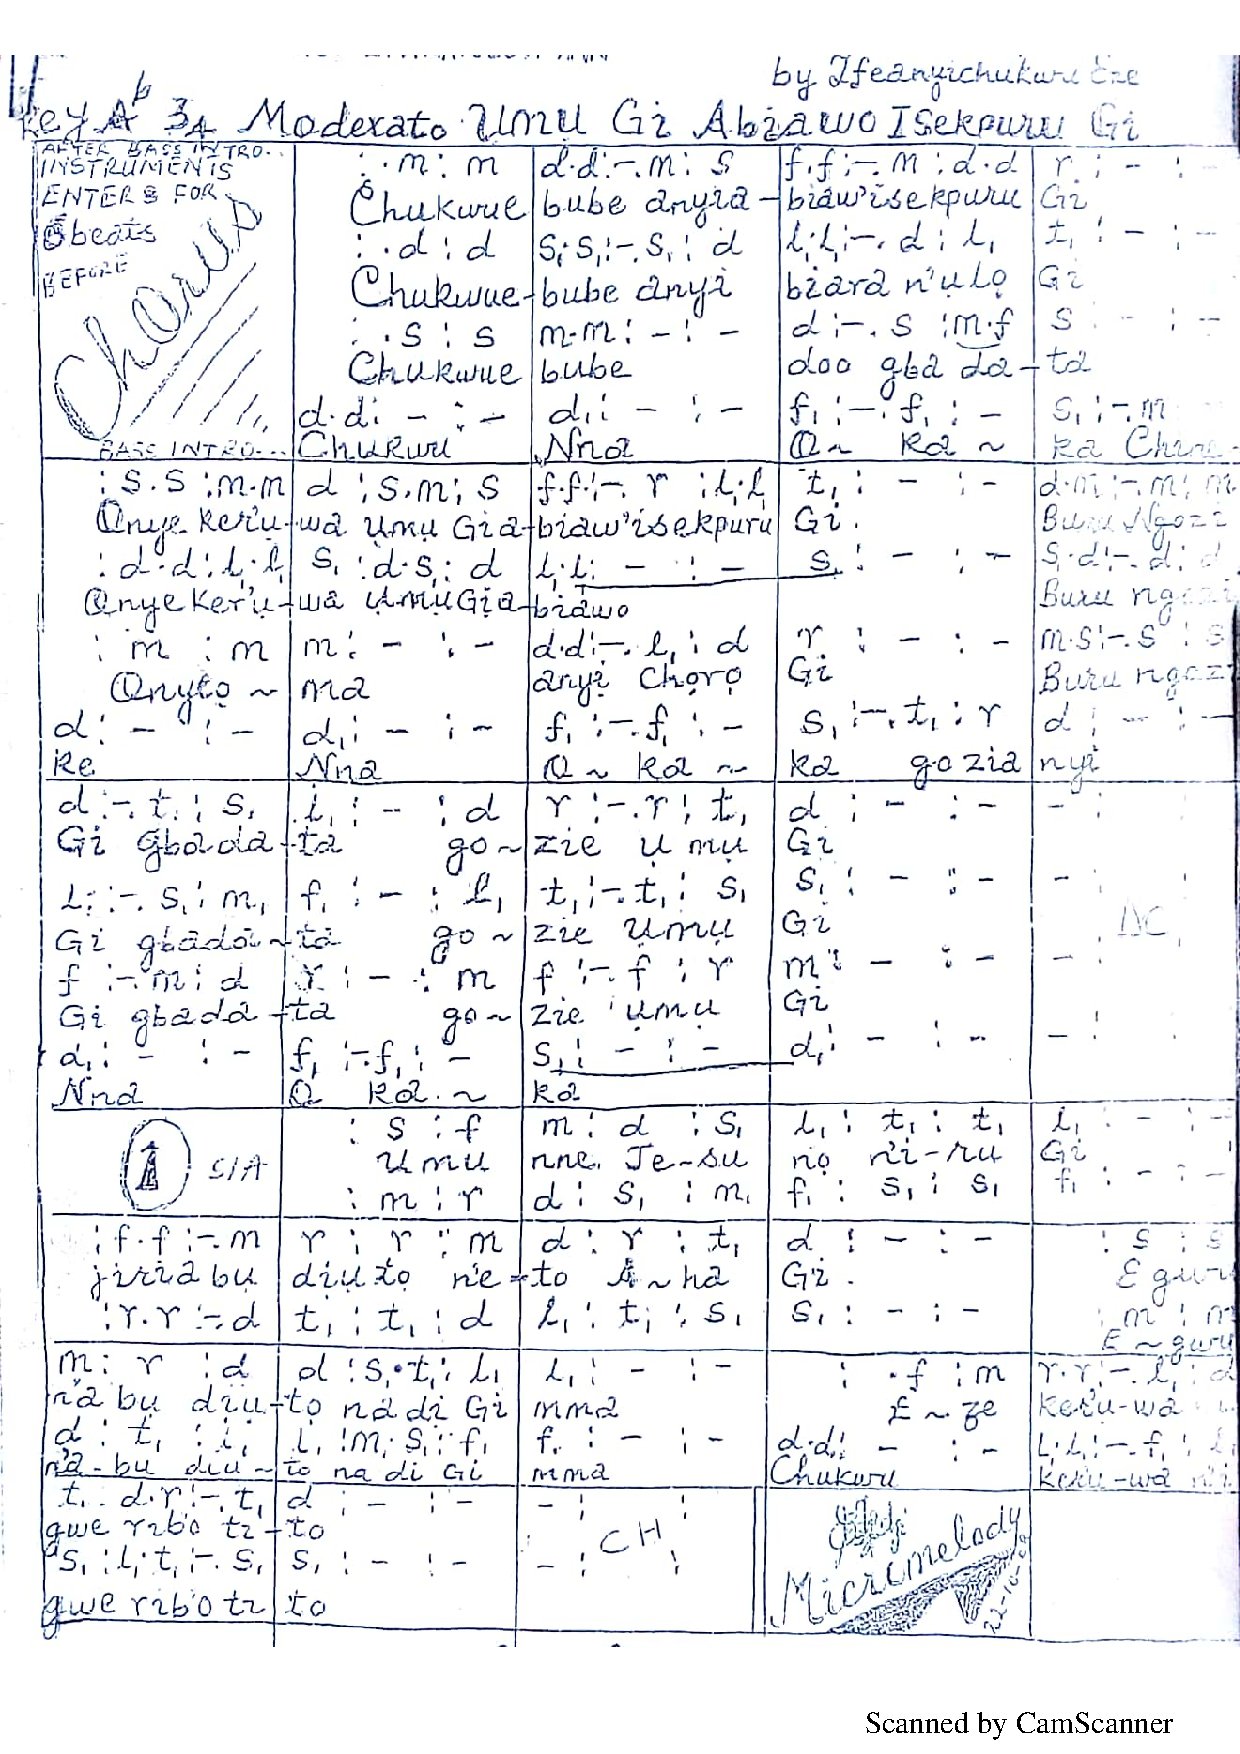 by Ifeanyichukwu Eze
Key Ab 3/4 Moderato Umu Gi Abiawo Isekpuru Gi
AFTER BASS INTRO...
INSTRUMENTS
ENTERS FOR
beats
BEFORE
Chorus
BASS INTRO...
: . m : m | d . d : - . m : s | f . f : - . m : d . d | r : - : -
Chukwue bube anyia - biaw'isekpuru Gi
: . d : d | s₁ . s₁ : - . s₁ : d | l₁ . l₁ : - . d : l₁ | t₁ : - : -
Chukwue - bube anyi biara n'ulọ Gi
: . s : s | m . m : - : - | d : - . s : m . f | s : - : -
Chukwue bube doo gba da - ta
d . d : - : - | d₁ : - : - | f₁ : - . f₁ : - | s₁ : - . m
Chukwu Nna Ọ ~ ka ~ ka
: s . s : m . m | d : s . m : s | f . f : - . r : l₁ . l₁ | t₁ : - : - | d . m : - . m : m
Onye kerụ - wa ụmụ Gia - biaw'isekpuru Gi. Buru Ngozi
: d . d : l₁ . l₁ | s₁ : d . s₁ : d | l₁ . l₁ : - : - | s₁ : - : - | s₁ . d : - . d : d
Onye kerụ - wa ụmụ Gia - biawo Buru ngozi
: m : m | m : - : - | d . d : - . l₁ : d | r : - : - | m . s : - . s : s
Onyeọ ~ ma anyị chọrọ Gi Buru ngozi
d : - : - | d₁ : - : - | f₁ : - . f₁ : - | s₁ : - . t₁ : r | d : - : -
ke Nna Ọ ~ ka ~ ka gozia nyi
d : - . t₁ : s₁ | l₁ : - : d | r : - . r : t₁ | d : - : - | - :
Gi gbada - ta go ~ zie ụmụ Gi
l₁ : - . s₁ : m₁ | f₁ : - : l₁ | t₁ : - . t₁ : s₁ | s₁ : - : - | - :
Gi gbada ~ ta go ~ zie ụmụ Gi
DC
f : - . m : d | r : - : m | f : - . f : r | m : - : - | - :
Gi gbada - ta go ~ zie ụmụ Gi
d₁ : - : - | f₁ : - . f₁ : - | s₁ : - : - | d₁ : - : - | - :
Nna Ọ ka ~ ka
1 S/A
: s : f | m : d : s₁ | l₁ : t₁ : t₁ | l₁ : - : -
Umu nne Je - su nọ n'i - ru Gi
: m : r | d : s₁ : m₁ | f₁ : s₁ : s₁ | f₁ : - : -
: f . f : - . m | r : r : m | d : r : t₁ | d : - : - | : s : s
jiria bu diuto n'e - to A ~ ha Gi. E guru
: r . r : - . d | t₁ : t₁ : d | l₁ : t₁ : s₁ | s₁ : - : - | : m : m
E ~ guru
m : r : d | d : s₁ . t₁ : l₁ | l₁ : - : - | : . f : m | r . r : - . l₁ : d
n'a bu diu - to na di Gi mma E ~ ze kerụ - wa
d : t₁ : l₁ | l₁ : m₁ . s₁ : f₁ | f₁ : - : - | d . d : - : - | l₁ . l₁ : - . f₁ : l₁
n'a - bu diu ~ to na di Gi mma Chukwu kerụ - wa n'i
t₁ . d . r : - . t₁ | d : - : - | - : :
gwe ribo ti - to
CH
s₁ : l₁ . t₁ : - . s₁ | s₁ : - : - | - : :
gwe ribo ti to
Micromelody
Scanned by CamScanner